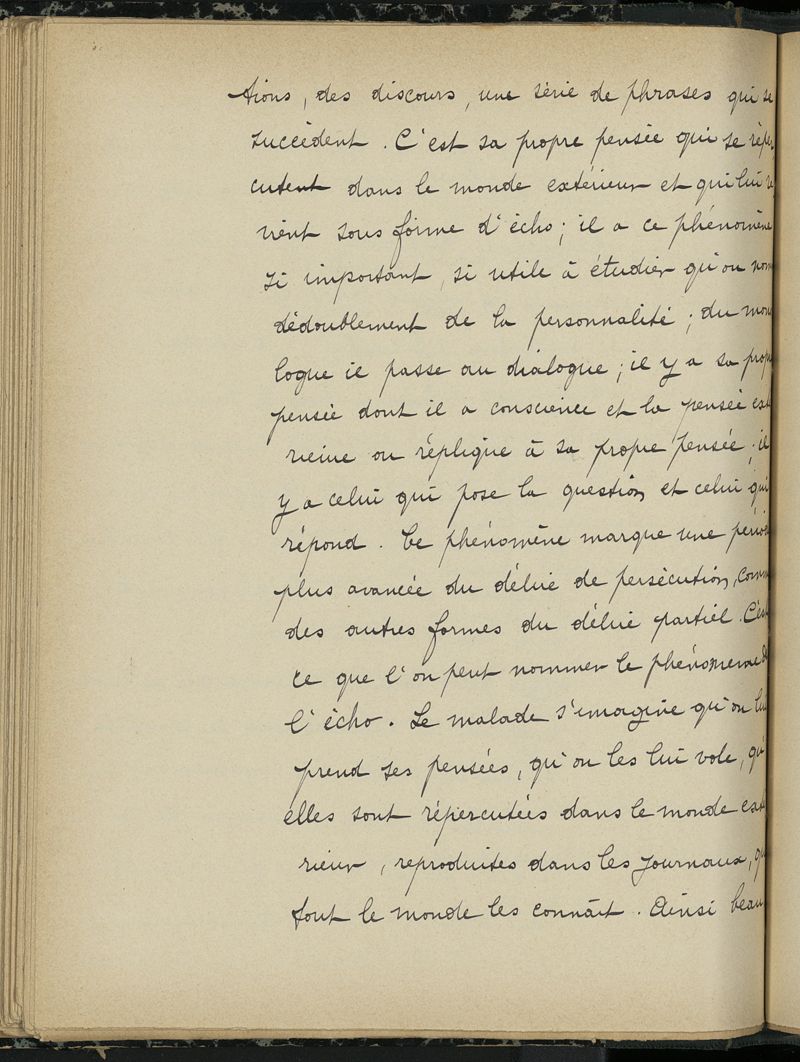 tions, des discours, une série de phrases qui se
succèdent. C'est sa propre pensée qui se réper
cutent dans le monde extérieur et qui lui re
vient sous forme d'écho; il a ce phénomène
si important, si utile à étudier qu'on nom
dédoublement de la personnalité; du mono
logue il passe au dialogue; il y a sa propre
pensée dont il a conscience et la pensée exté
rieine ou réplique à sa propre pensée; il
y a celui qui pose la question et celui qui
répond. Ce phénomène marque une période
plus avancée du délire de persécution, comm
des autres formes du délire partiel. C'est
ce que l'on peut nommer le phénomène de
l'écho. Le malade s'imagine qu'on lui
prend ses pensées, qu'on les lui vole, qu'
elles sont répercutées dans le monde exté
rieur, reproduites dans les journaux, qu
tout le monde les connaît. Ainsi beau